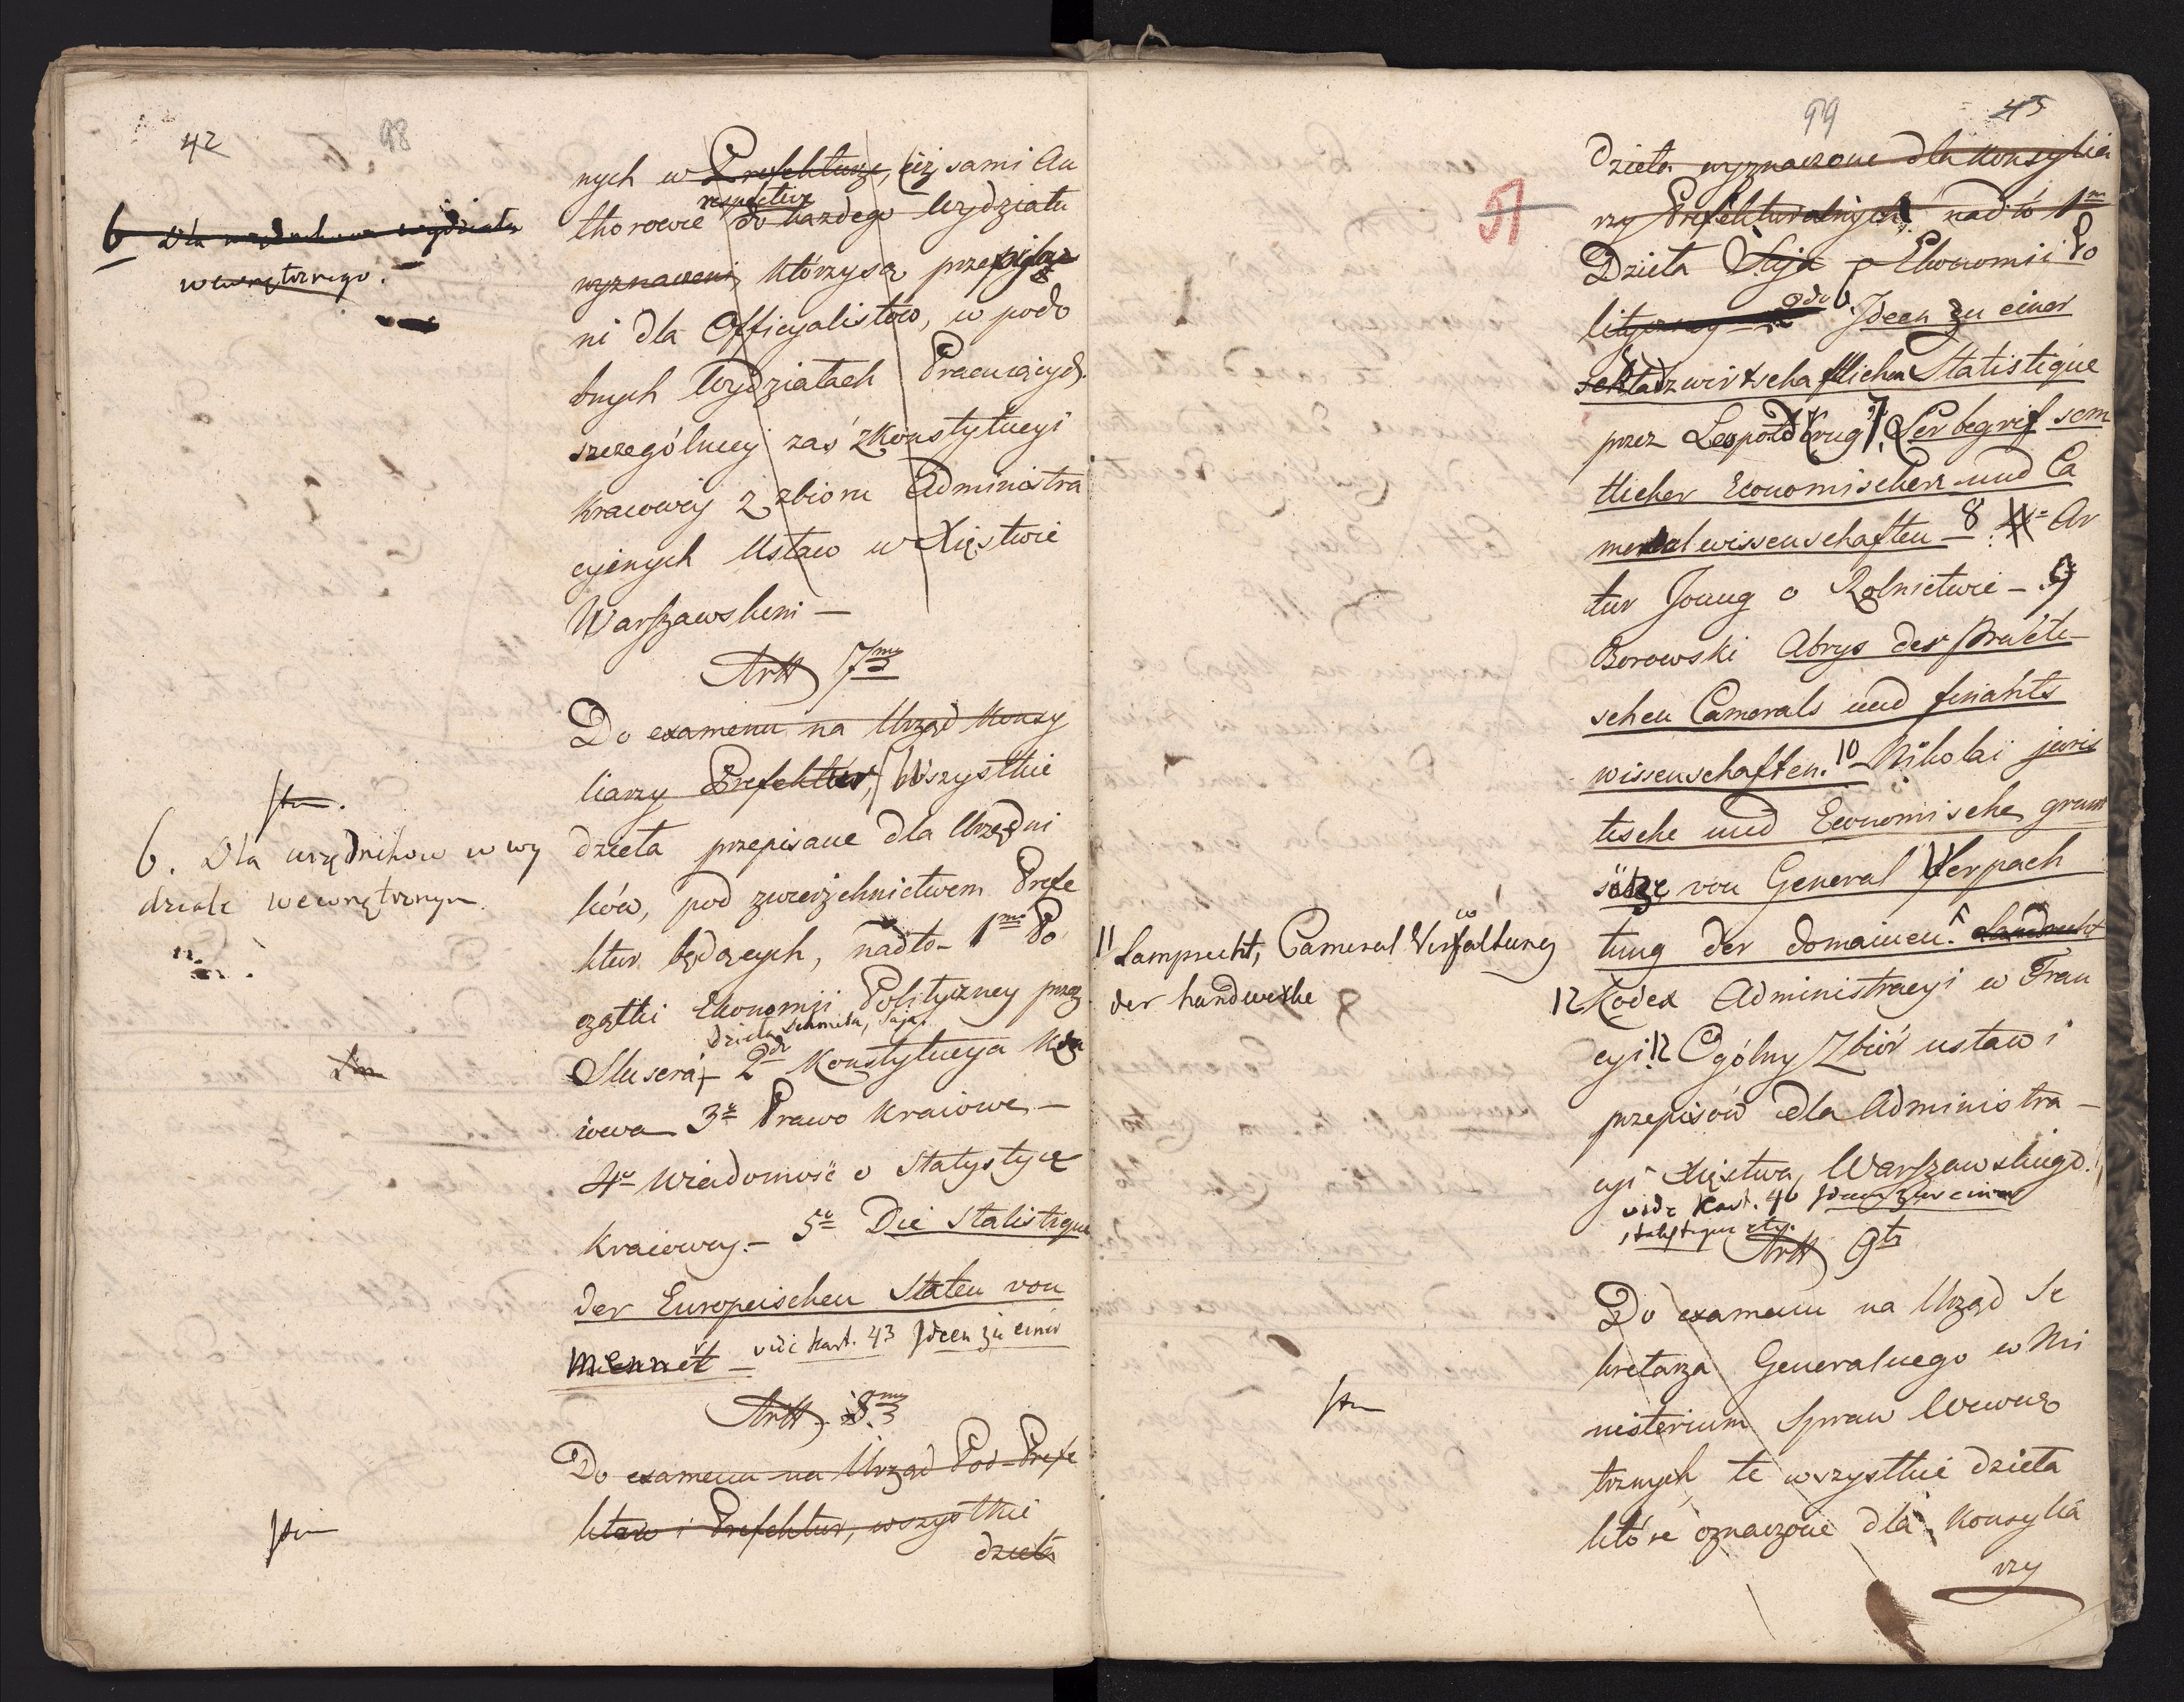 42
98
6 Dla urzędników wydziału
wewnętrznego.
nych w Prefekturze, ciż sami Au
respective
thorowie do każdego Wydziału
wyznaczeni, którzy są przepisa
ni dla Officyalistów, w podo
bnych Wydziałach Pracuiących.
szczególniey zaś z Konstytucyi
kraiowey z zbioru Administra
cyinych Ustaw w Xięstwie
Warszawskim —
Artt 7my
Do examenu na Urząd Konsy
liarzy Prefektur, Wszystkie
dzieła przepisane dla Urzędni
ków, pod zwierzchnictwem Prefe
ktur będących, nadto — 1mo Po
czątki Ekonomii Polityczney przez
dzieła Schmita, Saja.
Slusera — 2do Konstytucya Kra
iowa — 3o Prawo Kraiowe —
4o Wiadomość o Statystyce
Kraiowey. — 5o Die Statistique
der Europeischen Staten von
vide kart. 43 Ideen zu einer
Artt. 8my
Do examenu na Urząd Pod-Prefe
któw i Prefektur, wszystkie
dzieła
6. Dla urzędników w wy
dziale wewnętrznym
99
43
51
dzieła wyznaczone dla Konsylia
rzy Prefekturalnych nadto 1mo
Dzieła Saja o Ekonomii Po
lityczney — 2do Ideen zu einer
wirtschaftlichen Statistique
przez Leopold Krug 7. Lerbegrif sem
tlicher Economischen und Ca
meralwissenschaften — 8. Ar
tur Joung o Rolnictwie — 9
Borowski Abrys des prakti
schen Camerals und finahts
wissenschaften. 10 Nikolai juris
tische und Economische grun
sätze von General Verpach
tung der domainen.
11 Lamprecht, Cameral Verfaltung
der handwerke
12 Kodex Administracyi w Fran
cyi 12 Ogólny Zbiór ustaw i
przepisów dla Administra —
cyi Xięstwa Warszawskiego.
vide Kart. 46 Ideen zur einer
statystique etc.
Artt 9ty
Do examenu na Urząd Se
kretarza Generalnego w Mi
nisterium Spraw Wewnę
trznych, te wszystkie dzieła
które oznaczone dla Konsylia
rzy